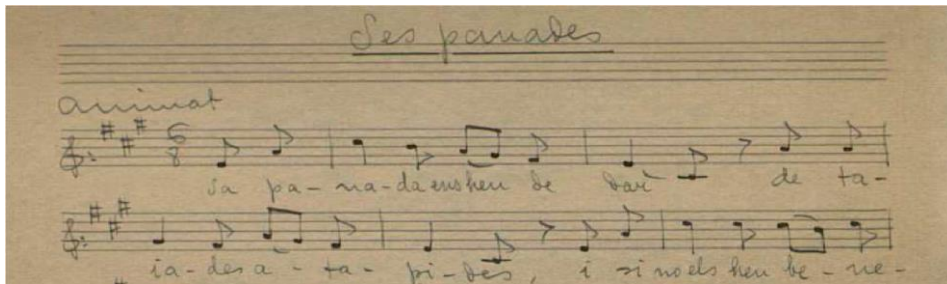 Ses panades
animat
6
8
sa pa-na-da ens heu de dar de ta-
ia-des a-ta-pi-des, i si no els heu be-ne-